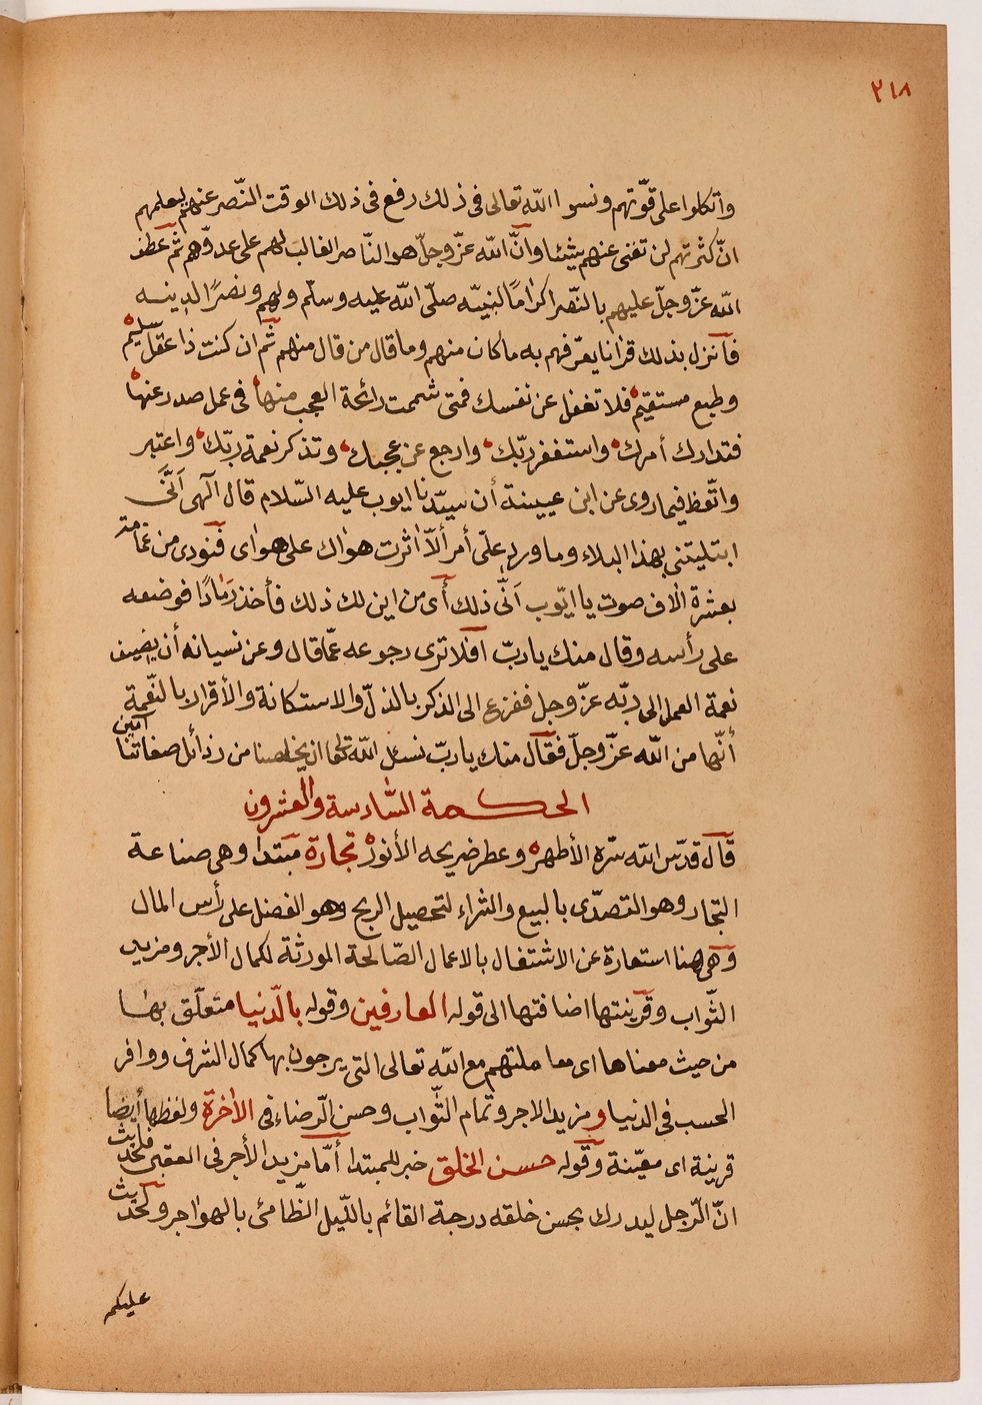 ٣١٨
واتكلوا على قوّتهم ونسوا الله تعالى فى ذلك رفع فى ذلك الوقت النّصر عنهم ليعلمهم
انّ كثرتهم لن تغنى عنهم شيئا وانّ الله عزّ وجلّ هو النّاصر الغالبَ لهم على عدوّهم ثمّ عطف
الله عزّ وجلّ عليهم بالنّصر اكرامًا لنبيّه صلّى الله عليه وسلّم ولهم ونصرًا لدينه
فأنزل بذلك قرانا يعرّفهم به ما كان منهم وما قال من قال منهم ثمّ ان كنت ذا عقل سليم
وطبع مستقيم فلا تغفل عن نفسك فمتى شممت رائحة العجب منها فى عمل صدر عنها
فتدارك أمرك واستغفر ربّك وارجع عن عجبك وتذكر نعمة ربّك واعتبر
واتّعظ فيما روى عن ابن عيينة أن سيّدنا ايوب عليه السّلام قال الٓهى اَنَّى
ابتليتنى بهذا البلاء وما ورد علىّ أمر ألّا اثرت هواك على هواى فنودى من غمامة
بعشرة الاف صوت يا ايّوب اَنَّى ذلك أى من اين لك ذلك فأخذ رمادًا فوضعه
على رأسه وقال منك يا ربّ افلا ترى رجوعه عمّا قال وعن نسيانه أن يضيف
نعمة العمل الى ربّه عزّ وجل ففزع الى الذكر بالذلّ والاستكانة والأقرار بالنّعمة
أنّها من الله عزّ وجلّ فقال منك يا ربّ نسئل الله تعالى ان يخلصنا من رذائل صفاتنا آمين
الحكمة السّادسة والعشرون
قال قدّس الله سرّه الأطهر وعطر ضريحه الأنور تجارة مبتدا وهى صناعة
التجار وهو التصدّى بالبيع والشراء لتحصيل الربح وهو الفضل على رأس المال
وهى هنا استعارة عن الاشتغال بالاعمال الصّالحة المورثة لكمال الأجر ومزيد
الثّواب وقرينتها اضافتها الى قوله العارفين وقوله بالدّنيا متعلّق بها
من حيث معناها اى معاملتهم مع الله تعالى التى يرجون بها كمال الشرف ووافر
الحسب فى الدنيا ومزيد الاجر وتمام الثّواب وحسن الرّضاء فى الأخرة ولفظها أيضا
قرينة اى معيّنة وقوله حسن الخلق خبر للمبتدا أمّا مزيد الأجر فى العقبى فلحديث
انّ الرّجل ليدرك بحسن خلقه درجة القائم باللّيل الظّامئ بالهواجر ولحديث
عليكم